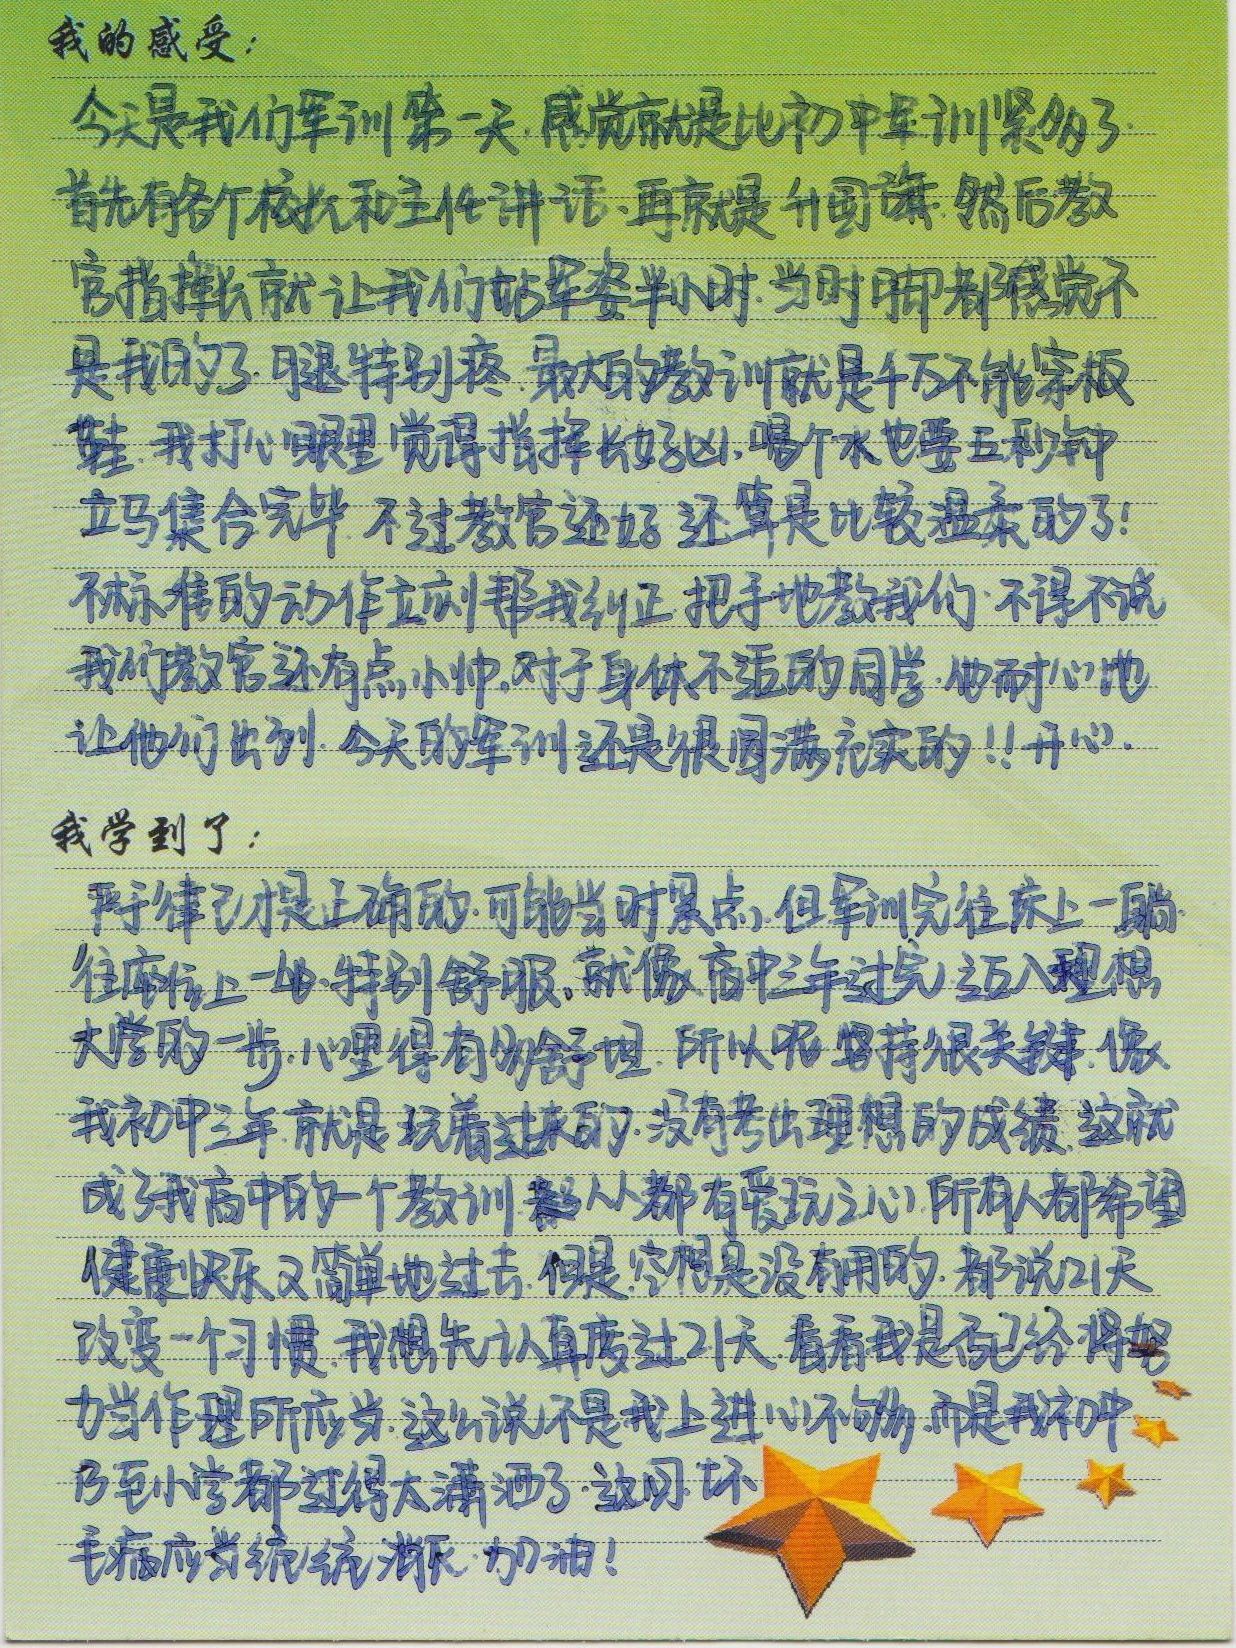 我的感受：
今天是我们军训第一天.感觉就是比初中军训紧多了.
首先有各个校长和主任讲话、再就是升国旗.然后教
官指挥长就让我们站军姿半小时.当时脚都感觉不
是我的了.腿特别疼.最大的教训就是千万不能穿板
鞋.我打心眼里觉得指挥长好凶,喝个水也要五秒钟
立马集合完毕.不过教官还好还算是比较温柔的了!
不标准的动作立刻帮我纠正.把手地教我们.不得不说
我们教官还有点小帅,对于身体不适的同学.他耐心地
让他们出列.今天的军训还是很圆满充实的!!开心.
我学到了：
严于律己才是正确的.可能当时累点,但军训完往床上一躺.
往座位上一坐.特别舒服。就像高中三年过完,迈入理想
大学的一步,心里得有多舒坦.所以呢坚持很关键.像
我初中三年.就是玩着过来的.没有考出理想的成绩.这就
成了我高中的一个教训.人人都有爱玩之心,所有人都希望
健康快乐又简单地过去.但是.空想是没有用的.都说21天
改变一个习惯.我想先认真度过21天.看看我是否已经将努
力当作理所应当.这么说不是我上进心不够.而是我初中
乃至小学都过得太潇洒了.这回.坏
毛病应当统统消灭.加油!